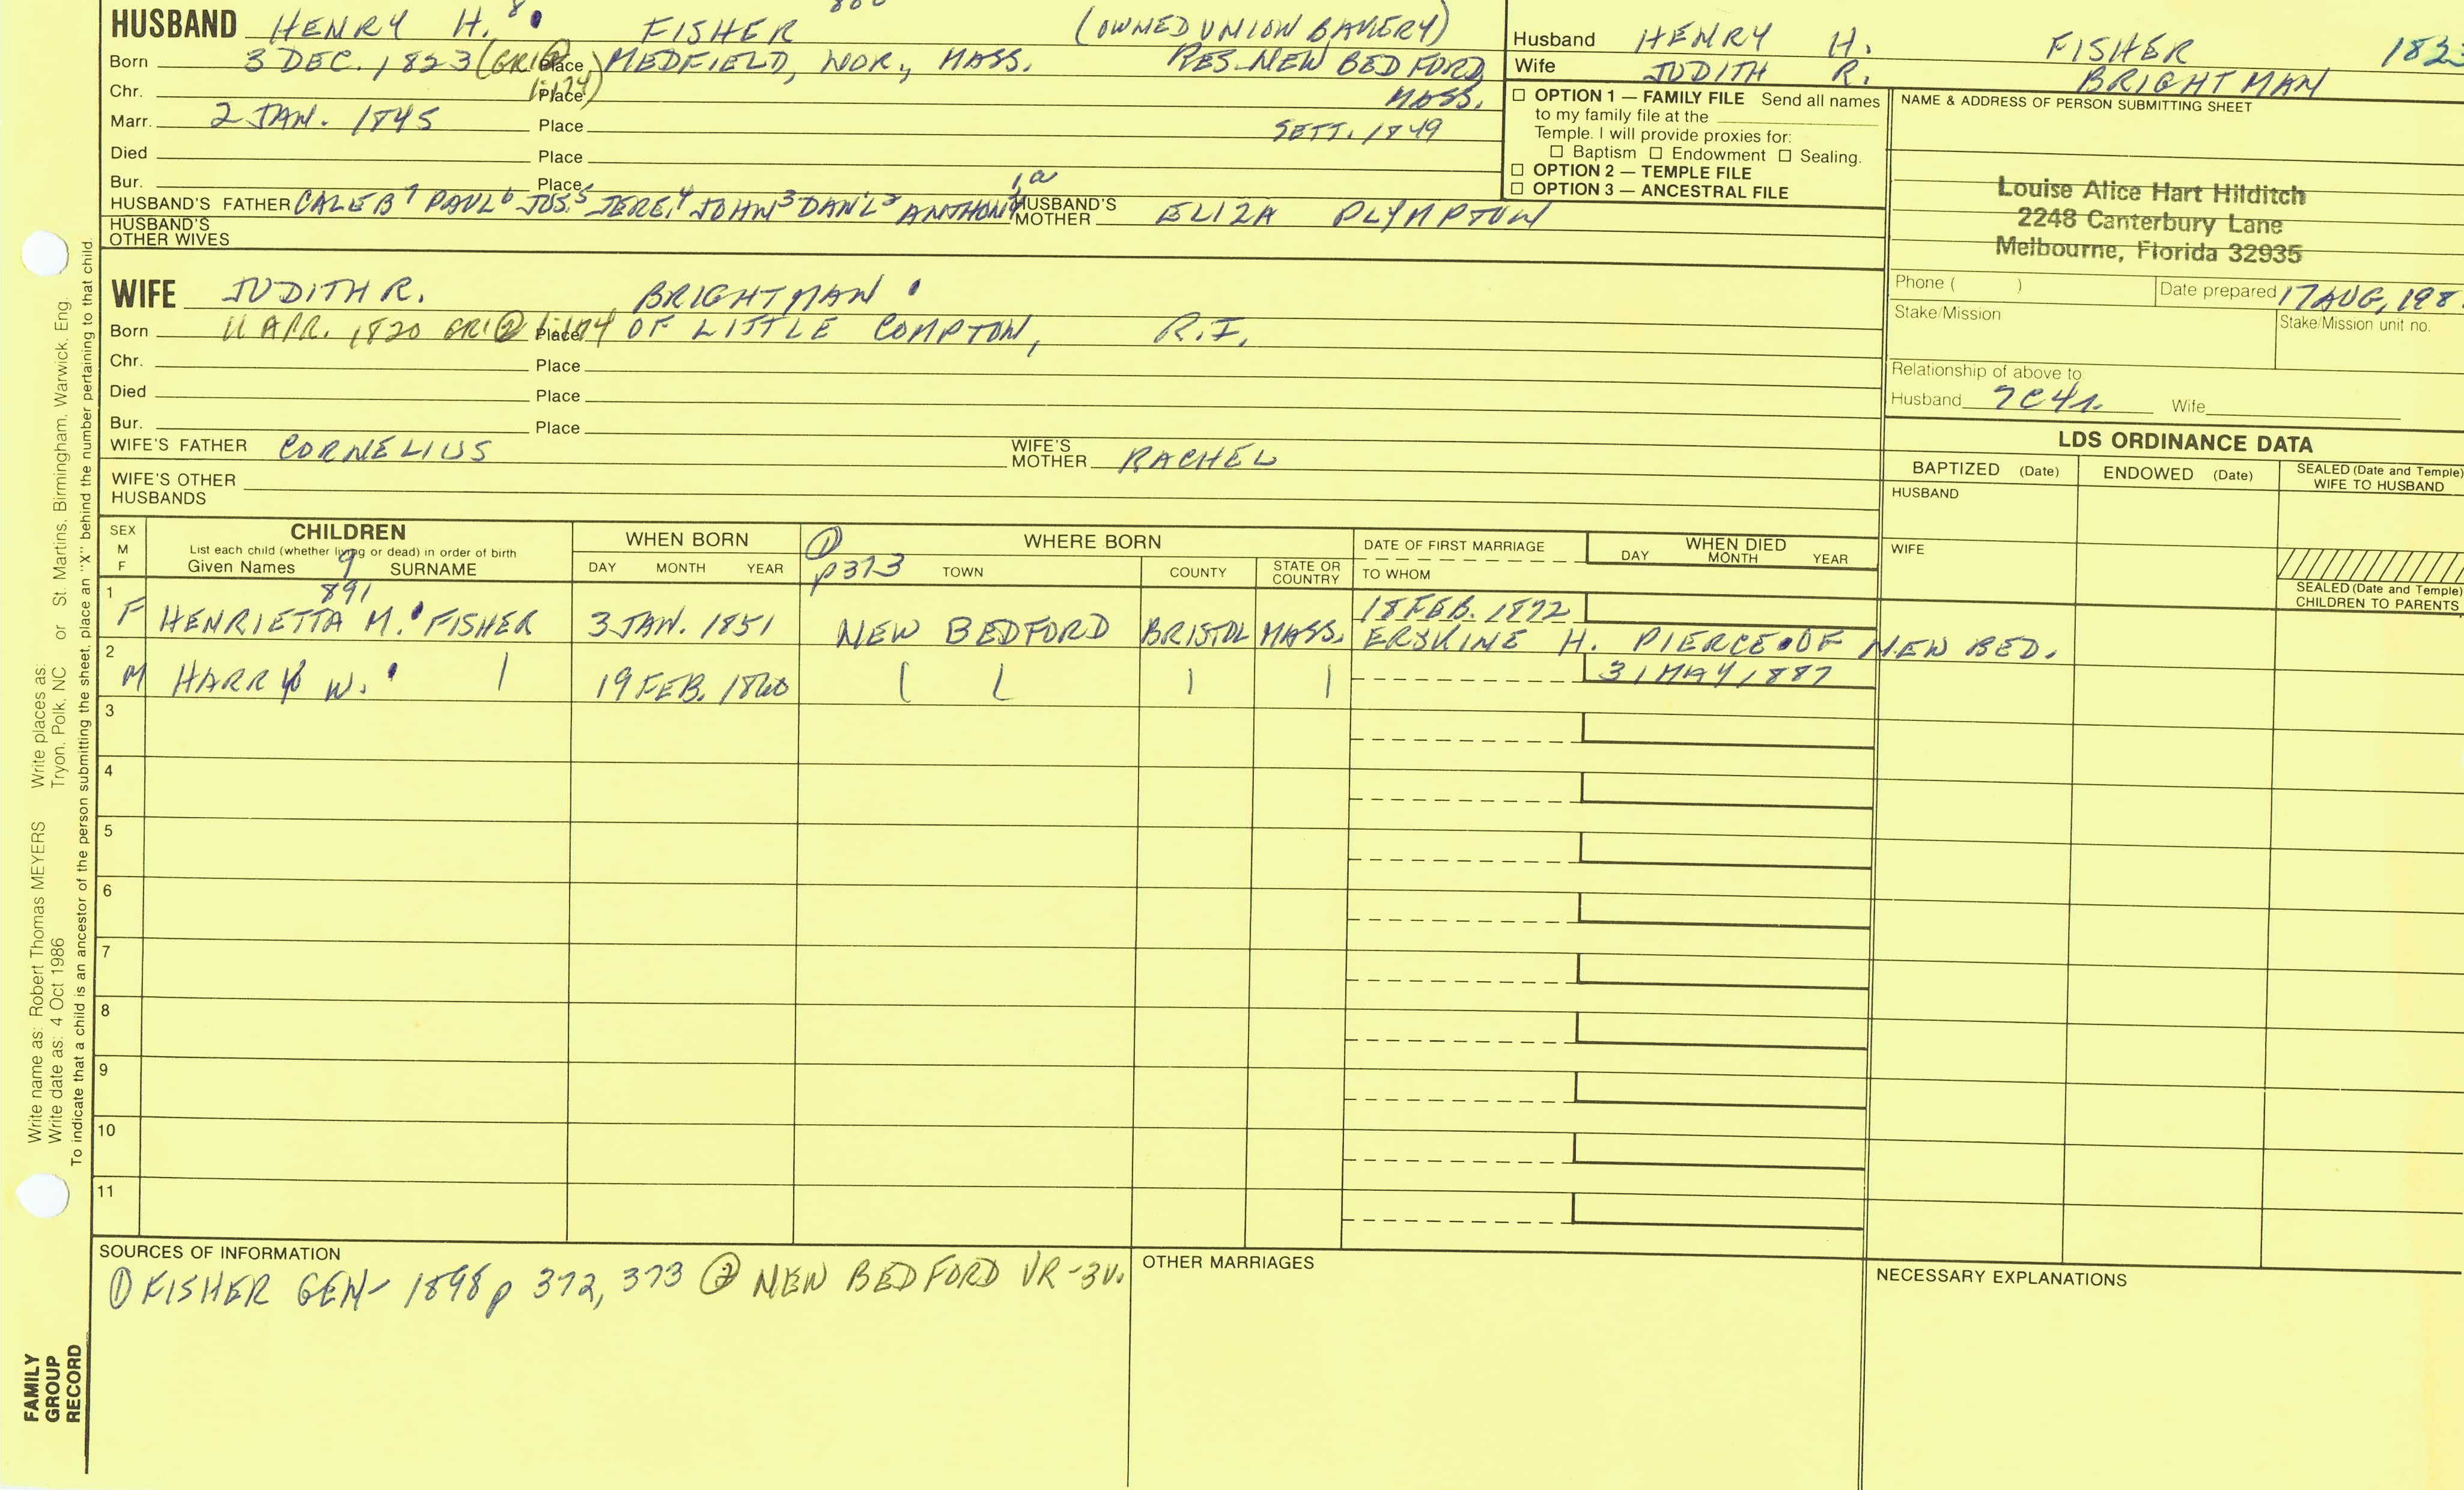 HUSBAND HENRY H. 8 FISHER (OWNED UNION BAKERY)
Born 3 DEC. 1823 Place MEDFIELD, NOR., MASS. RES. NEW BEDFORD,
Chr. Place MASS.
Marr. 2 JAN. 1845 Place SETT. 1849
Died Place
Bur. Place
HUSBAND'S FATHER CALEB7 PAUL6 JOS.5 JERE.4 JOHN3 DAN'L2 HUSBAND'S MOTHER ELIZA PLYMPTON
HUSBAND'S OTHER WIVES
WIFE JUDITH R. BRIGHTMAN
Born 11 APR. 1820 Place OF LITTLE COMPTON, R.I.
Chr. Place
Died Place
Bur. Place
WIFE'S FATHER CORNELIUS WIFE'S MOTHER RACHEL
WIFE'S OTHER HUSBANDS
Husband HENRY H. FISHER
Wife JUDITH R. BRIGHTMAN
☐ OPTION 1 — FAMILY FILE Send all names
to my family file at the
Temple. I will provide proxies for:
☐ Baptism ☐ Endowment ☐ Sealing.
☐ OPTION 2 — TEMPLE FILE
☐ OPTION 3 — ANCESTRAL FILE
NAME & ADDRESS OF PERSON SUBMITTING SHEET
Louise Alice Hart Hilditch
2248 Canterbury Lane
Melbourne, Florida 32935
Phone ( ) Date prepared 17 AUG, 198
Stake/Mission Stake/Mission unit no.
Relationship of above to
Husband 7C4r. Wife
LDS ORDINANCE DATA
BAPTIZED (Date) ENDOWED (Date) SEALED (Date and Temple) WIFE TO HUSBAND
HUSBAND
WIFE
SEALED (Date and Temple) CHILDREN TO PARENTS
SEX M F
CHILDREN
List each child (whether living or dead) in order of birth
Given Names 9 SURNAME
WHEN BORN
DAY MONTH YEAR
① p373
WHERE BORN
TOWN COUNTY STATE OR COUNTRY
DATE OF FIRST MARRIAGE
TO WHOM
WHEN DIED
DAY MONTH YEAR
891
1 F HENRIETTA M. FISHER 3 JAN. 1851 NEW BEDFORD BRISTOL MASS. 18 FEB. 1872
ERSKINE H. PIERCE OF NEW BED.
2 M HARRY W. 19 FEB. 1860 31 MAY 1887
3
4
5
6
7
8
9
10
11
SOURCES OF INFORMATION
① FISHER GEN- 1898 p 372, 373 ② NEW BEDFORD VR-3V.
OTHER MARRIAGES
NECESSARY EXPLANATIONS
Write name as: Robert Thomas MEYERS Write places as: St. Martins, Birmingham, Warwick, Eng
Write date as: 4 Oct 1986 Tryon, Polk, NC or
To indicate that a child is an ancestor of the person submitting the sheet, place an "X" behind the number pertaining to that child.
FAMILY
GROUP
RECORD